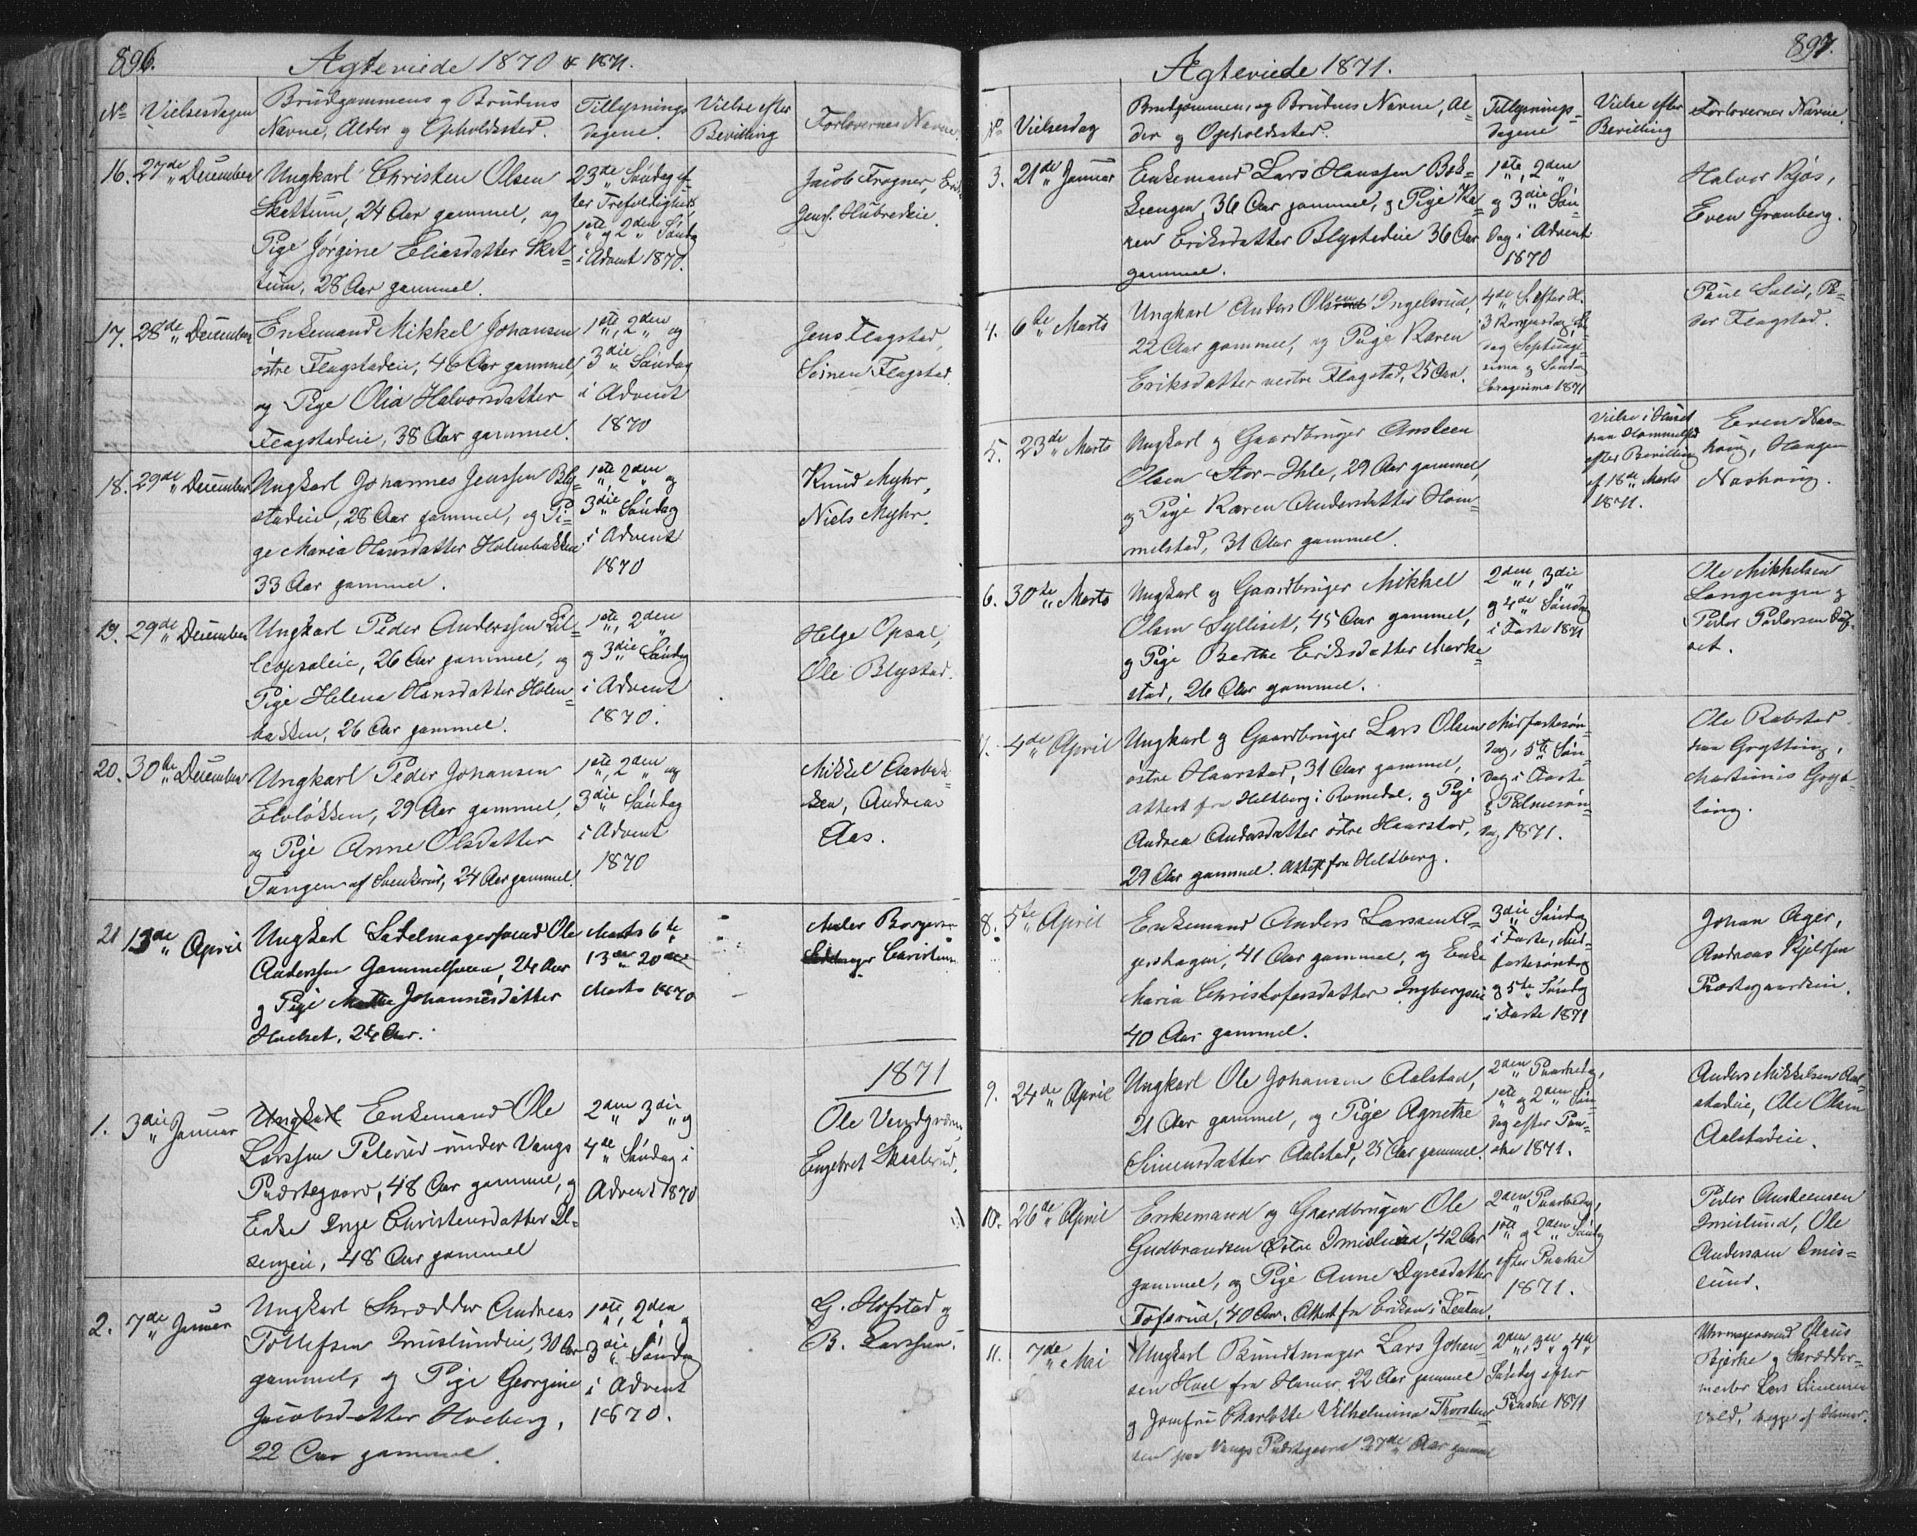 896.
Ægteviede 1870 & 1871.
No
Vielsesdagen
Brudgommens og Brudens
Navne, Alder og Opholdssted.
Tillysnings
dagene.
Vielse efter
Bevilling
Forlovernes Navne.
16. 27de December
Ungkarl Christen Olsen
Skattum, 24 Aar gammel, og
Pige Jørgine Eliasdatter Skat=
tum, 28 Aar gammel.
23de Søndag ef=
ter Trefoldighed
1ste og 2den Søndag
i Advent 1870.
Jacob Frogner,
Jens Hubredeie.
17. 28de December
Enkemand Mikkel Johansen
østre Flagstadeie, 46 Aar gammel,
og Pige Olia Halvorsdatter
Flagstadeie, 38 Aar gammel.
1ste, 2den og
3die Søndag
i Advent
1870
Jens Flagstad,
Seinen Flagstad.
18. 29de December
Ungkarl Johannes Jenssen Bly=
stadeie, 28 Aar gammel, og Pi=
ge Maria Hansdatter Holenbakken
33 Aar gammel.
1ste, 2den og
3die Søndag
i Advent
1870
Knud Myhr,
Niels Myhr.
19. 29de December
Ungkarl Peder Anderssen Lil=
leopsaleie, 26 Aar gammel, og
Pige Helena Hansdatter Holen=
bakken, 26 Aar gammel.
1ste, 2den
og 3die Søndag
i Advent
1870.
Helge Opsal,
Ole Blystad.
20. 30te December
Ungkarl Peder Johansen
Elvløkken, 29 Aar gammel,
og Pige Anne Olsdatter
Tangen af Svenkerud, 24 Aar gammel.
1ste, 2den og
3die Søndag
i Advent
1870
Mikkel Aasbak=
ken, Andreas
Aas.
21 13de April
Ungkarl Sadelmagersvend Ole
Anderssen Gammelsveen, 24 Aar
og Pige Marthe Johannesdatter
Hoelset, 24 Aar.
Marts 6te,
13de 20de
Marts 1870
1871
1. 3die Januar
Ungkarl Enkemand Ole
Larssen Pelerud under Vangs
Præstegaard, 48 Aar gammel, og
Enke Inge Christensdatter
48 Aar gammel
2den 3die og
4de Søndag i
Advent 1870
Ole Vendgræn,
Engebret Skaalerud.
2. 7de Januar
Ungkarl Skrædder Andreas
Tollefsen Imislundeie, 30 Aar
gammel, og Pige Georgine
Jacobsdatter Hoeberg,
22 Aar gammel.
1ste, 2den og
3die Søndag
i Advent
1870.
G. Hofstad og
B. Larssen.
897.
Ægteviede 1871.
No
Vielsesdag
Brudgommens, og Brudens Navne, Al=
der og Opholdssted.
Tillysnings=
dagene
Vielse efter
Bevilling
Forlovernes Navne.
3. 21de Januar
Enkemand Lars Hanssen Bæk=
keengen, 36 Aar gammel, og Pige Ka=
ren Eriksdatter Blystadeie 36 Aar
gammel.
1ste, 2den
og 3die Søn=
dag i Advent
1870
Halvor Kjos,
Even Granberg.
4. 6te Marts
Ungkarl Anders Olsen Ingelsrud,
22 Aar gammel, og Pige Karen
Eriksdatter vestre Flagstad, 25 Aar.
4de S. efter H.
3 Kongersdag,
dag Septuage=
sima og Søndag
Sexagesima 1871
Poul Salid, Pe=
der Flagstad.
5. 23de Marts
Ungkarl og Gaardbruger Ansteen
Olsen Stor-Ihle, 29 Aar gammel,
og Pige Karen Andersdatter Hom=
melstad, 31 Aar gammel.
Vielse i Huset
paa Hommelstad
efter Bevilling
af 18de Marts
1871.
Even Nas=
houg, Haagen
Nashoug.
6. 30te Marts
Ungkarl og Gaardbruger Mikkel
Olsen Sylliset, 45 Aar gammel,
og Pige Berthe Eriksdatter Marke=
stad, 26 Aar gammel.
2den, 3die
og 4de Søndag
i Faste 1871
Ole Mikkelsen
Langengen og
Peder Pedersen
7. 4de April
Ungkarl og Gaardbruger Lars Olsen
østre Haarstad, 31 Aar gammel,
attest fra Heltberg i Romedal, og Pige
Andrea Andersdatter østre Haarstad,
29 Aar gammel. Attest fra Heltberg.
Midfastesøn=
dag, 5te Søn=
dag i Faste
og Palmesøn=
dag 1871.
Ole Rabstad
paa Grytting,
Martinus Gryt=
ting.
8. 5te April
Enkemand Anders Larssen A=
gershagen, 41 Aar gammel, og Enke
Maria Christofersdatter Ingbergseie
40 Aar gammel.
3die Søndag
i Faste, Mid=
fastesøndag
og 5te Søndag
i Faste 1871
Johan Ager,
Andreas Kjelssen
Præstegaardseie.
9. 24de April
Ungkarl Ole Johansen Aalstad,
21 Aar gammel, og Pige Agnethe
Simensdatter Aalstad, 25 Aar gammel.
2den Paaskedag,
1ste og 2den Søn=
dag efter Paa=
ske 1871.
Anders Mikkelsen Aal=
stadeie, Ole Olsen
Aalstadeie.
10. 26de April
Enkemand og Gaardbruger Ole
Gudbrandsen Østre Imislund, 42 Aar
gammel, og Pige Anne Dyresdatter
Tofsrud, 40 Aar. Attest fra Eriksen i Løiten.
2den Paaskedag,
1ste og 2den Søndag
efter Paaske
1871.
Peder Ansteensen
Imislund, Ole
Anderssen Imis=
lund.
11. 7de Mai
Ungkarl Bundtmager Lars Johan=
sen Hoel fra Hamar, 22 Aar gammel
og Jomfru Charlotte Vilhelmina Thorsten=
sen paa Vangs Præstegaard 27de Aar gammel
2den, 3die og 4de
Søndag efter
Paaske 1871
Uhrmagersvend Claus
Bjerke og Skrædder=
mester Lars Simensen
Vold, begge af Hamar.